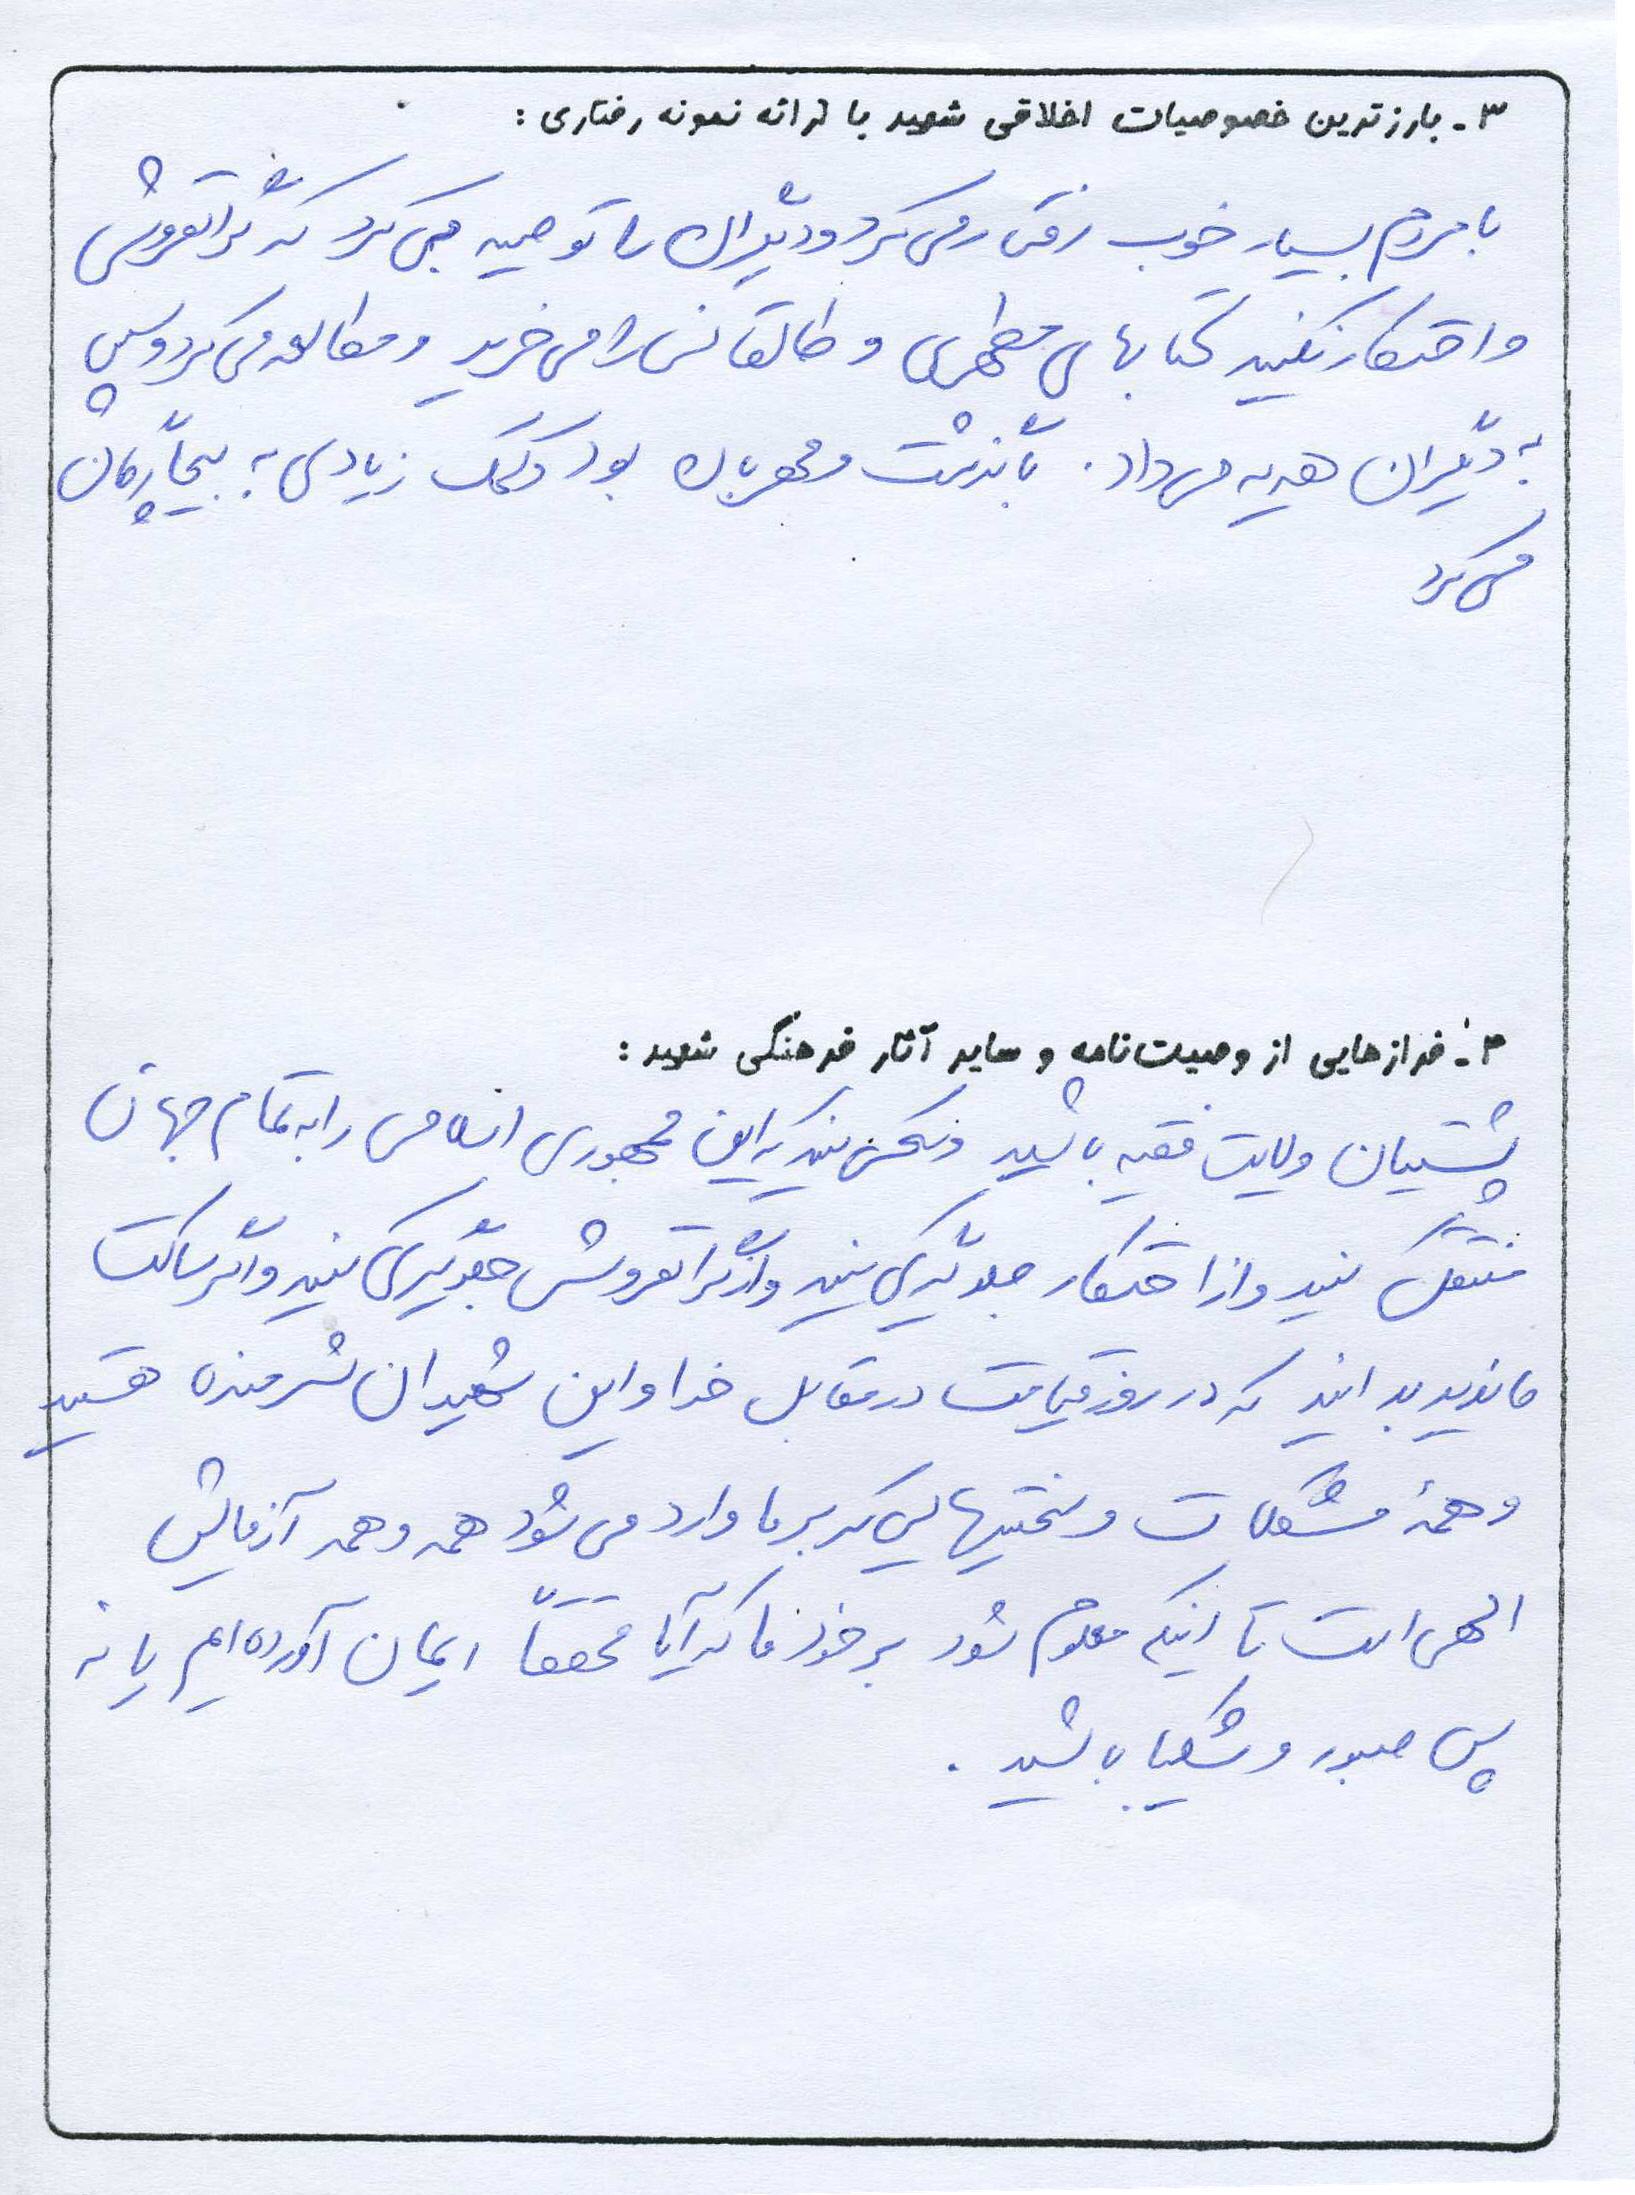 ۳- بارزترین خصوصیات اخلاقی شهید با ارائه نمونه رفتاری:
با مردم بسیار خوب رفتار می کرد و دیگران را توصیه می کرد که گرانفروشی
و احتکار نکنید کتابهای مطهری و طالقانی را می خرید و مطالعه می کرد و سپس
به دیگران هدیه می داد. با گذشت و مهربان بود و کمک زیادی به بیچارگان
می کرد
۴- فرازهایی از وصیت‌نامه و سایر آثار فرهنگی شهید:
پشتیبان ولایت فقیه باشید و سعی کنید که این جمهوری اسلامی را به تمام جهان
منتقل کنید و از احتکار جلوگیری کنید و از گرانفروشی جلوگیری کنید و اگر ساکت
ماندید بدانید که در روز قیامت در مقابل خدا و این شهیدان شرمنده هستید
و همهٔ مشکلات و سختیهایی که بر ما وارد می شود همه و همه آزمایش
الهی است تا اینکه معلوم شود بر خود ما که آیا محققاً ایمان آورده ایم یا نه
پس صبور و شکیبا باشید.